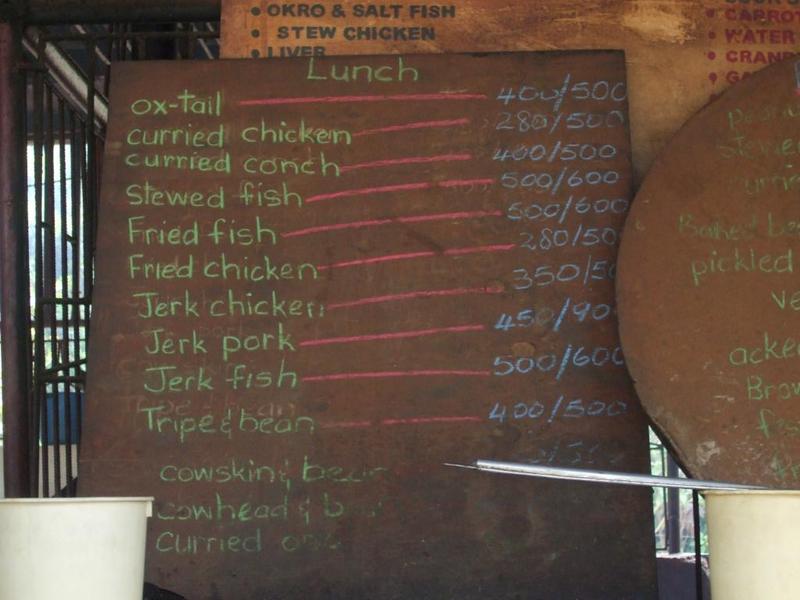 OKRO & SALT FISH
STEW CHICKEN
LIVER
CARROT
WATER
Lunch
ox-tail 400/500
curried chicken 280/500
curried conch 400/500
Stewed fish 500/600
Fried fish 500/600
Fried chicken 280/50
Jerk chicken 350/50
Jerk pork 450/90
Jerk fish 500/600
Tripe & bean 400/500
cowskin & bean
cowhead & b
Curried
Baked be
pickled
ve
acke
Brow